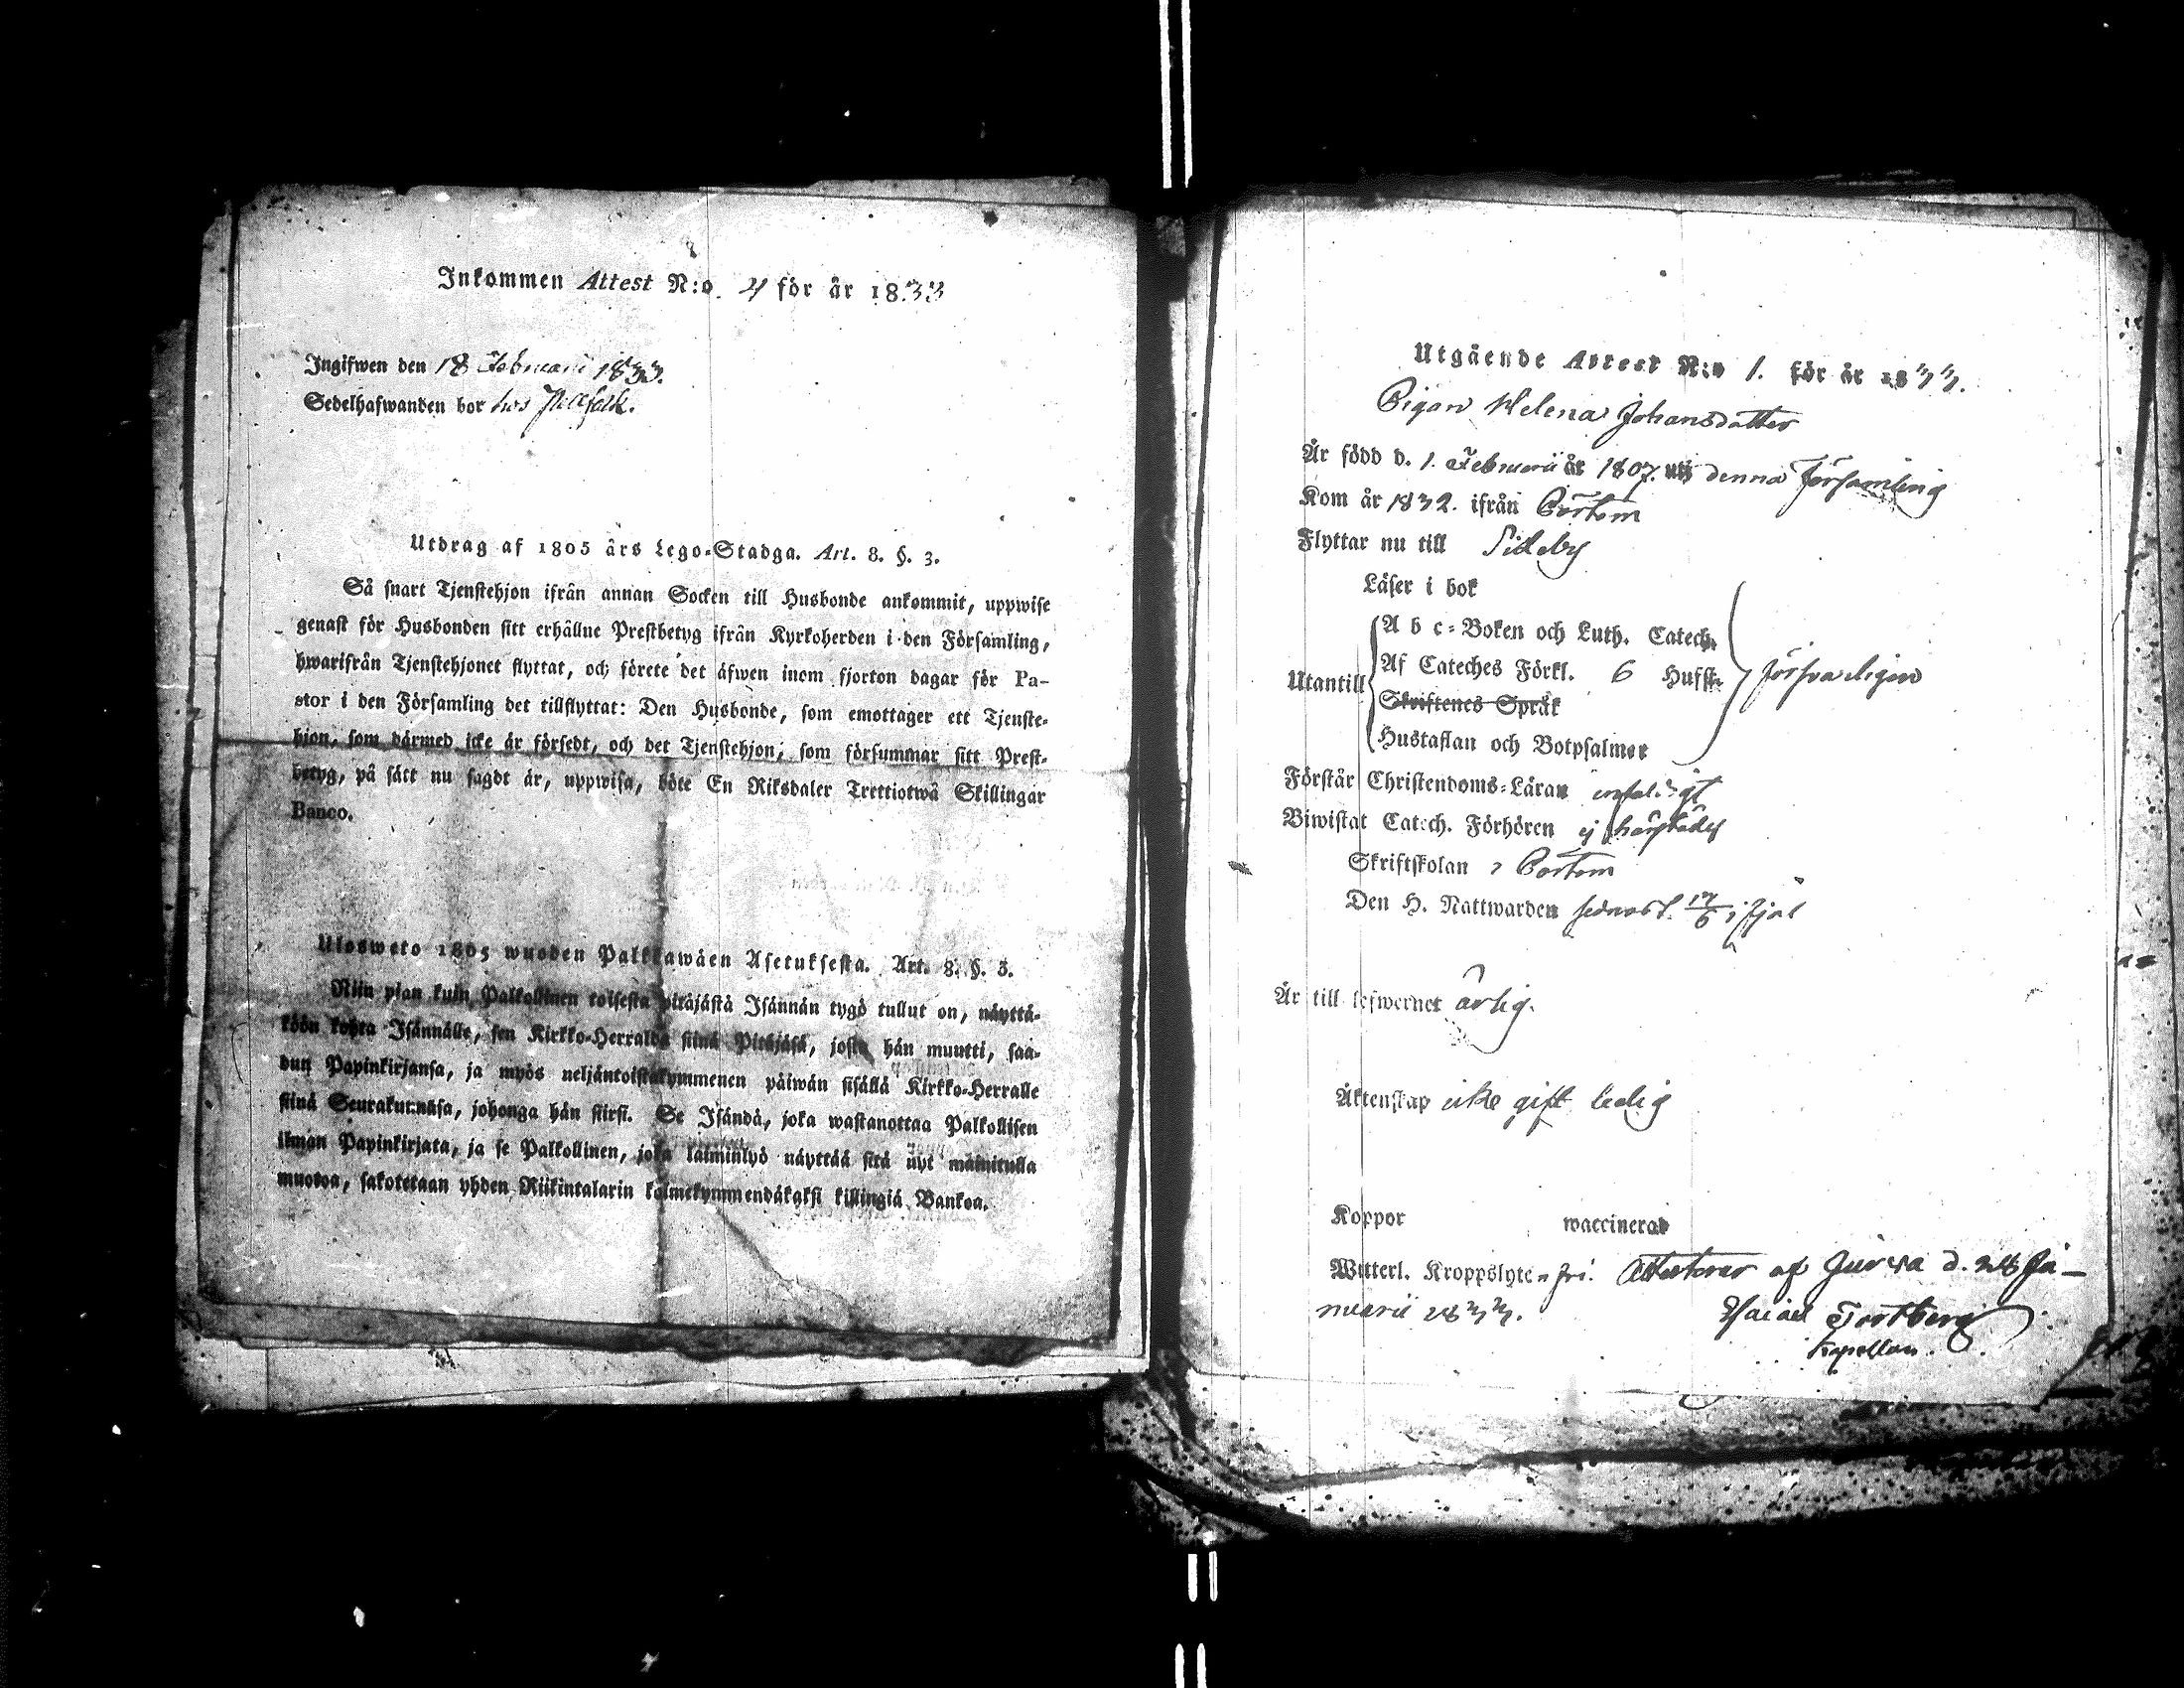 Inkommen Attest N:o. 4 för år 1833
Ingifwen den 18 Februarii 1833.
Sedelhafwanden bor hos
Utdrag af 1805 års Lego-Stadga. Art. 8. §. 3.
Så snart Tjenstehjon ifrån annan Socken till Husbonde ankommit, uppwise
genast för Husbonden sitt erhållne Prestbetyg ifrån Kyrkoherden i den Församling,
hwarifrån Tjenstehjonet flyttat, och förete det äfwen inom fjorton dagar för Pa-
stor i den Församling det tillflyttat: Den Husbonde, som emottager ett Tjenste-
hjon, som därmed icke är försedt, och det Tjenstehjon, som försummar sitt Prest-
betyg, på sätt nu sagdt är, uppwisa, böte En Riksdaler Trettiotwå Skillingar
Banco.
Ulosweto 1805 wuoden Palkkawäen Asetuksesta. Art. 8. §. 3.
Niin pian kuin Palkollinen toisesta pitäjästä Isännän tygö tullut on, näyttä-
köön kohta Isännälle, sen Kirkko-Herralda siinä Pitäjäsä, josta hän muutti, saa-
dun Papinkirjansa, ja myös neljäntoistakymmenen päiwän sisällä Kirkko-Herralle
siinä Seurakunnasa, johonga hän siirsi. Se Isändä, joka wastanottaa Palkollisen
ilman Papinkirjata, ja se Palkollinen, joka laiminlyö näyttää sitä nyt mainitulla
muotoa, sakotetaan yhden Riikintalarin kolmekymmendäkaksi killingiä Bankoa.
Utgående Attest N:o 1. för år 1833.
Pigan Helena Johansdotter
Är född d. 1. Februarii år 1807. uti denna Församling
Kom år 1832. ifrån Pörtom
Flyttar nu till Sideby
Läser i bok
A b c-Boken och Luth. Catech.
Utantill Af Cateches Förkl. 6 Hufst. försvarligen
Skriftenes Språk
Hustaflan och Botpsalmer
Förstår Christendoms-Läran enfaldigt
Biwistat Catech. Förhören ej härstädes
Skriftskolan i Pörtom
Den H. Nattwarden sednast. 17/6 i fjol
Är till lefwernet ärlig.
Äktenskap icke gift ledig
Koppor waccinerad
Witterl. Kroppslyte n fri. Attesterar af Jurva d. 28 Ja-
nuarii 1833. Esaias
Kapellan.